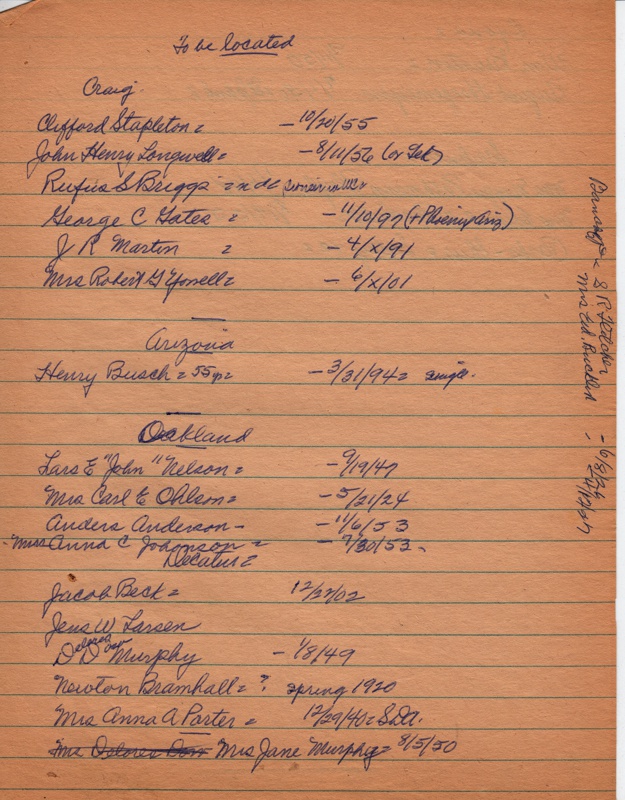 To be located
Craig
Clifford Stapleton = - 10/20/55
John Henry Longwell = - 8/11/56 (or Tek)
Rufus S Briggs = nd
George C Gates = - 11/10/97 (+ Phoenix Ariz)
J R Martin = - 4/x/91
Mrs Robert G Yowell = - 6/x/01
Arizona
Henry Busch = 55 yr = - 3/31/94 = single.
Oakland
Lars E "John" Nelson = - 9/19/47
Mrs Carl E Ohlson = - 5/21/24
Anders Anderson - - 11/6/53
Miss Anna C Johnson = - 7/30/53 -
Decatur =
Jacob Beck = 12/27/02
Jens W Larsen
Delores Dorr
D D Murphy - 1/8/49
Newton Bramhall = ? spring 1920
Mrs Anna A Porter = 12/29/40 = SDA.
Mrs Delores Dorr Mrs Jane Murphy = 8/5/50
Bancroft = S R Fletcher - 6/8/26
Mrs Ed. Buckland -